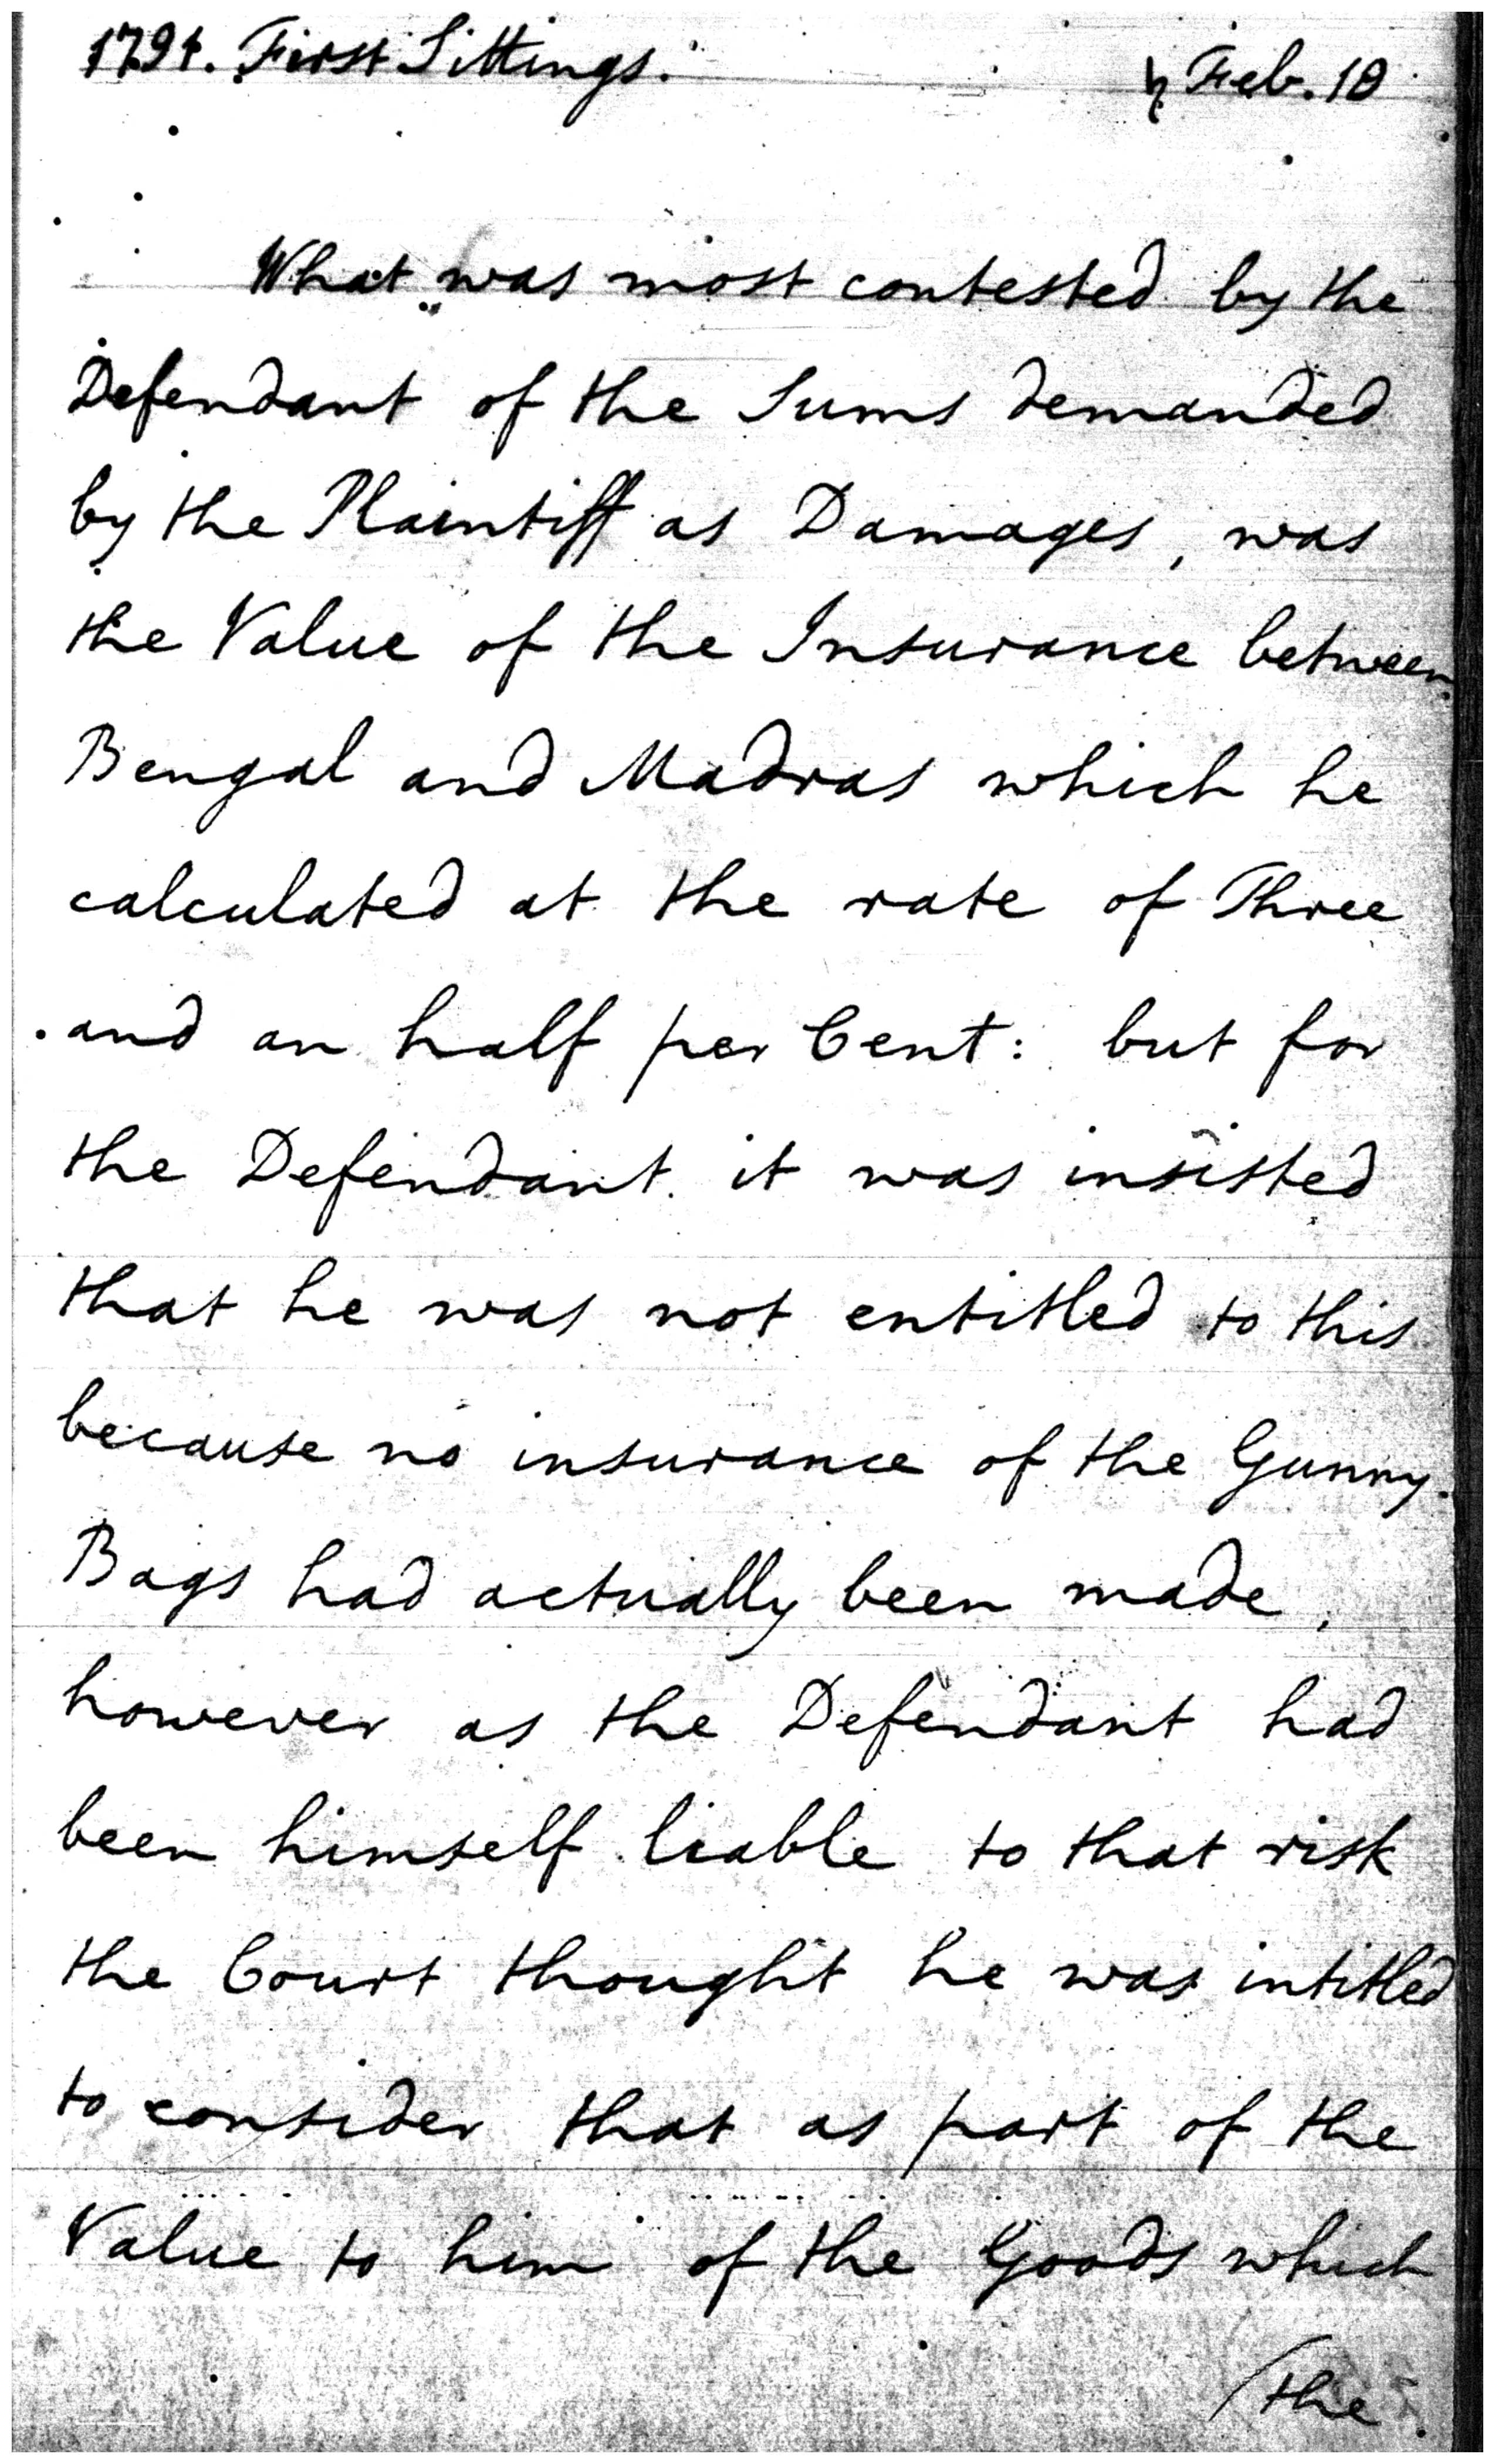 1791. First Sittings. ♄ Feb. 19
What was most contested by the
Defendant of the Sums demanded
by the Plaintiff as Damages, was
the Value of the Insurance between
Bengal and Madras which he
calculated at the rate of Three
and an half per Cent: but for
the Defendant it was insisted
that he was not entitled to this
because no insurance of the Gunny
Bags had actually been made,
however as the Defendant had
been himself liable to that risk
the Court thought he was intitled
to consider that as part of the
Value to him of the Goods which
/the.